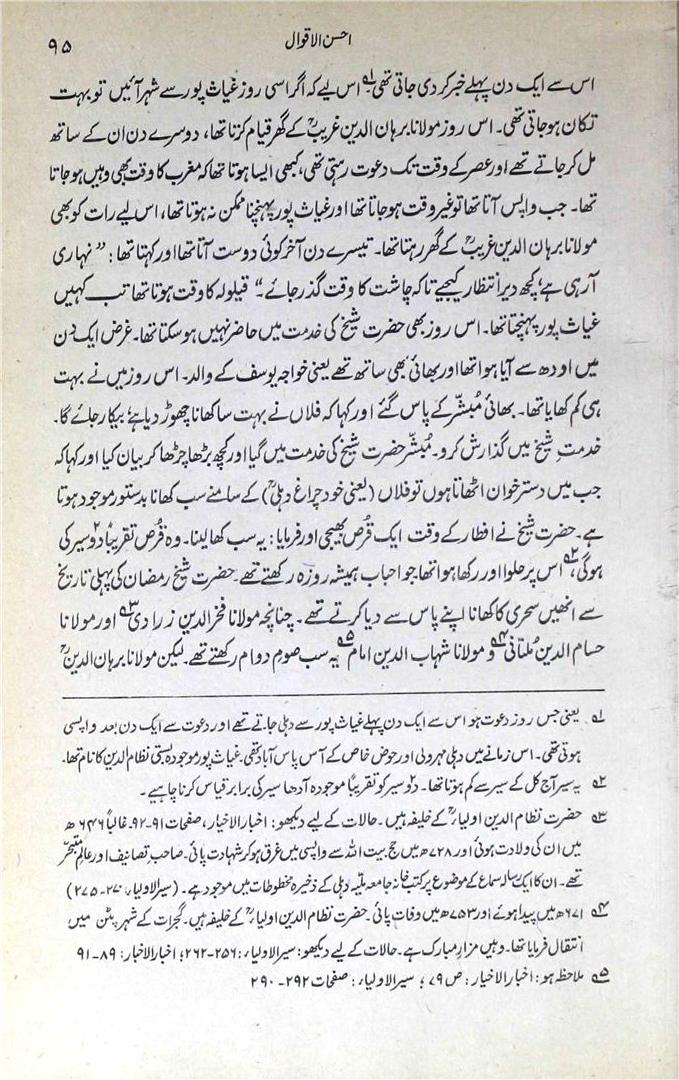 احسن الاقوال
۹۵
اس سے ایک دن پہلے خبر کر دی جاتی تھی۔۱ اس لیے کہ اگر اسی روز غیاث پور سے شہر آئیں تو بہت
تکان ہو جاتی تھی۔ اس روز مولانا برہان الدین غریبؒ کے گھر قیام کرتا تھا، دوسرے دن ان کے ساتھ
مل کر جاتے تھے اور عصر کے وقت تک دعوت رہتی تھی، کبھی ایسا ہوتا تھا کہ مغرب کا وقت بھی وہیں ہو جاتا
تھا۔ جب واپس آتا تھا تو غیر وقت ہو جاتا تھا اور غیاث پور پہنچنا ممکن نہ ہوتا تھا، اس لیے رات کو بھی
مولانا برہان الدین غریبؒ کے گھر رہتا تھا۔ تیسرے دن آخر کوئی دوست آتا تھا اور کہتا تھا: "نہاری
آ رہی ہے، کچھ دیر انتظار کیجیے تاکہ چاشت کا وقت گذر جائے۔" قیلولہ کا وقت ہوتا تھا تب کہیں
غیاث پور پہنچتا تھا۔ اس روز بھی حضرت شیخ کی خدمت میں حاضر نہیں ہو سکتا تھا۔ غرض ایک دن
میں اودھ سے آیا ہوا تھا اور بھائی بھی ساتھ تھے یعنی خواجہ یوسف کے والد۔ اس روز میں نے بہت
ہی کم کھایا تھا۔ بھائی مُبشّر کے پاس گئے اور کہا کہ فلاں نے بہت سا کھانا چھوڑ دیا ہے، بیکار جائے گا۔
خدمتِ شیخ میں گذارش کرو۔ مُبشّر حضرت شیخ کی خدمت میں گیا اور کچھ بڑھا چڑھا کر بیان کیا اور کہا کہ
جب میں دسترخوان اٹھاتا ہوں تو فلاں (یعنی خود چراغ دہلیؒ) کے سامنے سب کھانا بدستور موجود ہوتا
ہے۔ حضرت شیخ نے افطار کے وقت ایک قُرص بھیجی اور فرمایا: یہ سب کھا لینا۔ وہ قُرص تقریباً دو سیر کی
ہوگی،۲ اس پر حلوا اور رکھا ہوا تھا جو احباب ہمیشہ روزہ رکھتے تھے۔ حضرت شیخ رمضان کی پہلی تاریخ
سے انھیں سحری کا کھانا اپنے پاس سے دیا کرتے تھے۔ چنانچہ مولانا فخرالدین زرادی۳ اور مولانا
حسام الدین مُلتانی۴ و مولانا شہاب الدین امام۵ یہ سب صومِ دوام رکھتے تھے۔ لیکن مولانا برہان الدینؒ
۱ یعنی جس روز دعوت ہو اس سے ایک دن پہلے غیاث پور سے دہلی جاتے تھے اور دعوت سے ایک دن بعد واپسی
ہوتی تھی۔ اس زمانے میں دہلی مہرولی اور حوض خاص کے آس پاس آباد تھی۔ غیاث پور موجودہ بستی نظام الدین کا نام تھا۔
۲ یہ سیر آج کل کے سیر سے کم ہوتا تھا۔ دو سیر کو تقریباً موجودہ آدھا سیر کی برابر قیاس کرنا چاہیے۔
۳ حضرت نظام الدین اولیاءؒ کے خلیفہ ہیں۔ حالات کے لیے دیکھو: اخبار الاخیار، صفحات ۹۱-۹۲۔ غالباً ۶۴۶ ھ
میں ان کی ولادت ہوئی اور ۷۲۸ھ میں حج بیت اللہ سے واپسی میں غرق ہو کر شہادت پائی۔ صاحب تصانیف اور عالمِ متبحّر
تھے۔ ان کا ایک رسالہ سماع کے موضوع پر کتب خانہ جامعہ ملّیہ دہلی کے ذخیرہ مخطوطات میں موجود ہے۔ (سیرالاولیاء: ۲۷۰-۲۷۵)
۴ ۶۷۱ھ میں پیدا ہوئے اور ۷۵۳ھ میں وفات پائی۔ حضرت نظام الدین اولیاءؒ کے خلیفہ ہیں۔ گجرات کے شہر پٹن میں
انتقال فرمایا تھا۔ وہیں مزار مبارک ہے۔ حالات کے لیے دیکھو: سیرالاولیاء: ۲۵۶-۲۶۲؛ اخبار الاخیار: ۸۹-۹۱
۵ ملاحظہ ہو: اخبار الاخیار: ص ۷۹؛ سیرالاولیاء: صفحات ۲۹۲-۲۹۰